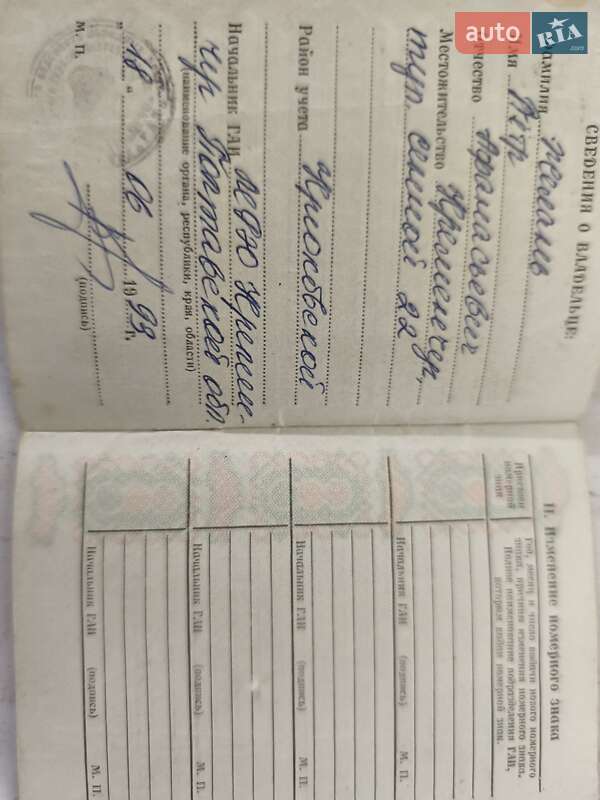 auto RIA.com
СВЕДЕНИЯ О ВЛАДЕЛЬЦЕ:
Фамилия
Имя Петр
Отчество Афанасьевич
Местожительство Кременчуг,
туп. Сенной 22
Район учета Крюковской
Начальник ГАИ МРЭО Кремен-
чуг Полтавской обл.
(наименование органа, республики, края, области)
„18“ 06 1993 г.
М. П. (подпись)
II. Изменение номерного знака
Присвоен номерной знак
Год, месяц и число выдачи нового номерного знака, причина изменения номерного знака. Полное наименование подразделения ГАИ, которым выдан номерной знак.
Начальник ГАИ (подпись) М. П.
Начальник ГАИ (подпись) М. П.
Начальник ГАИ (подпись) М. П.
Начальник ГАИ (подпись) М. П.